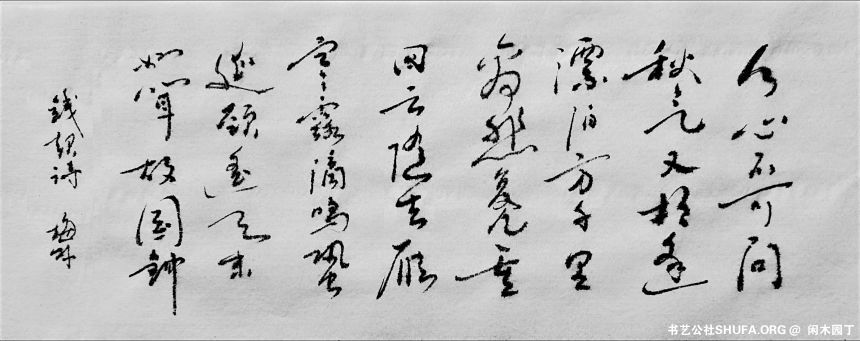 心不可问
秋气又相逢
漂泊方千里
重
回云随去雁
寒露滴鸣蛩
延颈遥天末
如闻故国钟
钱起诗 梅
书艺公社SHUFA.ORG @ 闲木园丁